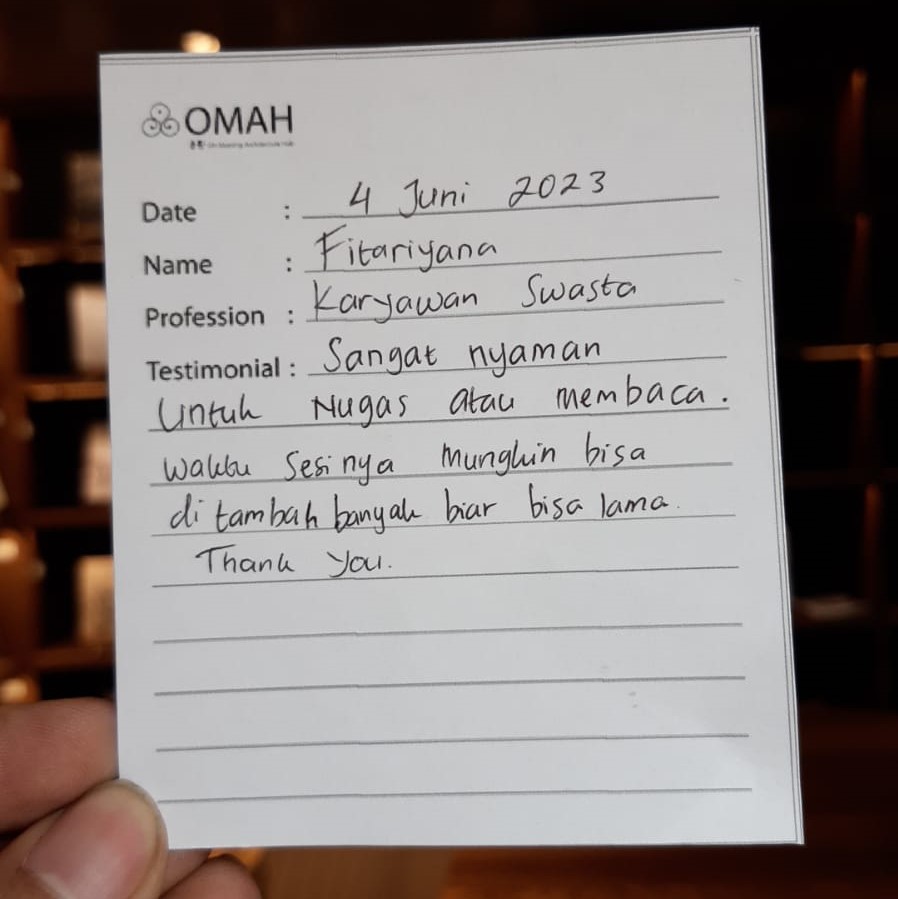 OMAH
Date : 4 Juni 2023
Name : Fitariyana
Profession : Karyawan Swasta
Testimonial : Sangat nyaman
Untuk Nugas atau membaca.
waktu Sesinya Mungkin bisa
di tambah banyak biar bisa lama.
Thank You.